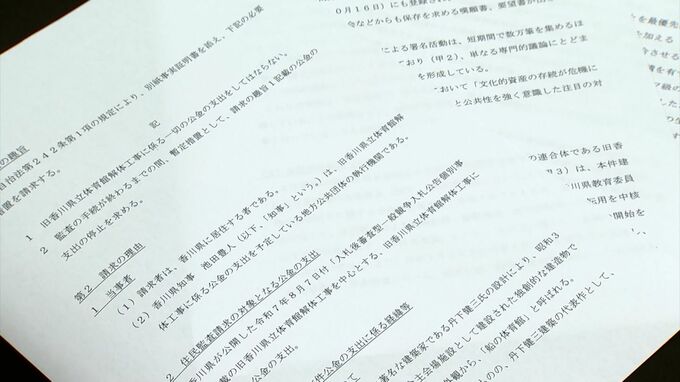 の趣旨
自治法第242条第1項の規定により、別紙事実証明書を添え、下記の必要
措置を請求する。
記
1 旧香川県立体育館解体工事に係る一切の公金の支出をしてはならない。
2 監査の手続が終わるまでの間、暫定措置として、請求の趣旨1記載の公金の
支出の停止を求める。
第2 請求の理由
1 当事者
(1) 請求者は、香川県に居住する者である。
(2) 香川県知事 池田豊人(以下、「知事」という。)は、旧香川県立体育館解
体工事に係る公金の支出を予定している地方公共団体の執行機関である。
2 住民監査請求の対象となる公金の支出
香川県が公開した令和7年8月7日付「入札後審査型一般競争入札公告個別事
記載の旧香川県立体育館解体工事を中心とする、旧香川県立体育館解体工事に
公金の支出。
件公金の支出に係る経緯等
著名な建築家である丹下健三氏の設計により、昭和3
主会場施設として建設された独創的な建造物で
外観から、「船の体育館」と呼ばれる。
のの、丹下健三建築の代表作として、
0月16日)にも登録され
令などからも保存を求める嘆願書、要望書が出
による署名活動は、短期間で数万筆を集めるほ
おり(甲2)、単なる専門的議論にとどま
を形成している。
おいて「文化的資産の存続が危機に
と公共性を強く意識した注目の対
の連合体である旧香
3)は、本件建
香川県教育委員
活用を中核
開始を
を最優先
を加える